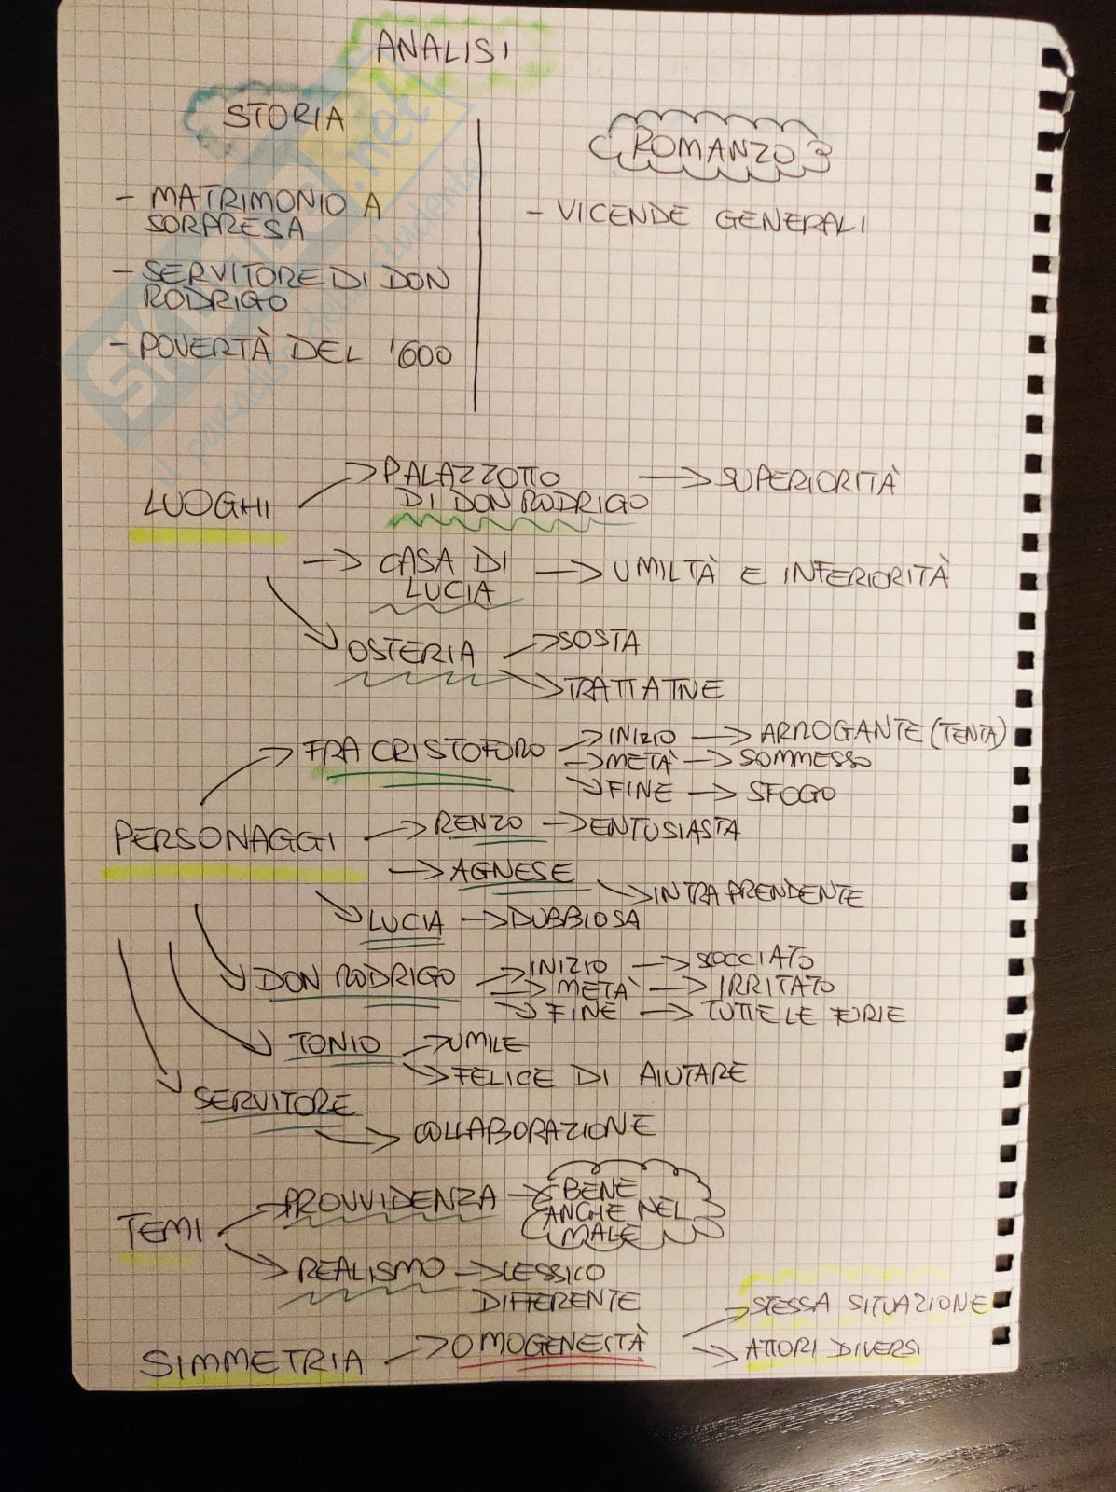 ANALISI
STORIA
- MATRIMONIO A
SORPRESA
- SERVITORE DI DON
RODRIGO
- POVERTÀ DEL '600
ROMANZO
- VICENDE GENERALI
LUOGHI
PALAZZOTTO
DI DON RODRIGO → SUPERIORITÀ
→ CASA DI
LUCIA → UMILTÀ E INFERIORITÀ
OSTERIA → SOSTA
→ TRATTATIVE
PERSONAGGI
→ FRA CRISTOFORO → INIZIO → ARROGANTE (TENTA)
→ METÀ → SOMMESSO
→ FINE → SFOGO
→ RENZO → ENTUSIASTA
→ AGNESE → INTRAPRENDENTE
→ LUCIA → DUBBIOSA
→ DON RODRIGO → INIZIO → SOCCIATO
→ METÀ → IRRITATO
→ FINE → TUTTE LE FURIE
→ TONIO → UMILE
→ FELICE DI AIUTARE
→ SERVITORE
→ COLLABORAZIONE
TEMI
→ PROVVIDENZA → BENE
ANCHE NEL
MALE
→ REALISMO → LESSICO
DIFFERENTE
SIMMETRIA → OMOGENEITÀ → STESSA SITUAZIONE
→ ATTORI DIVERSI